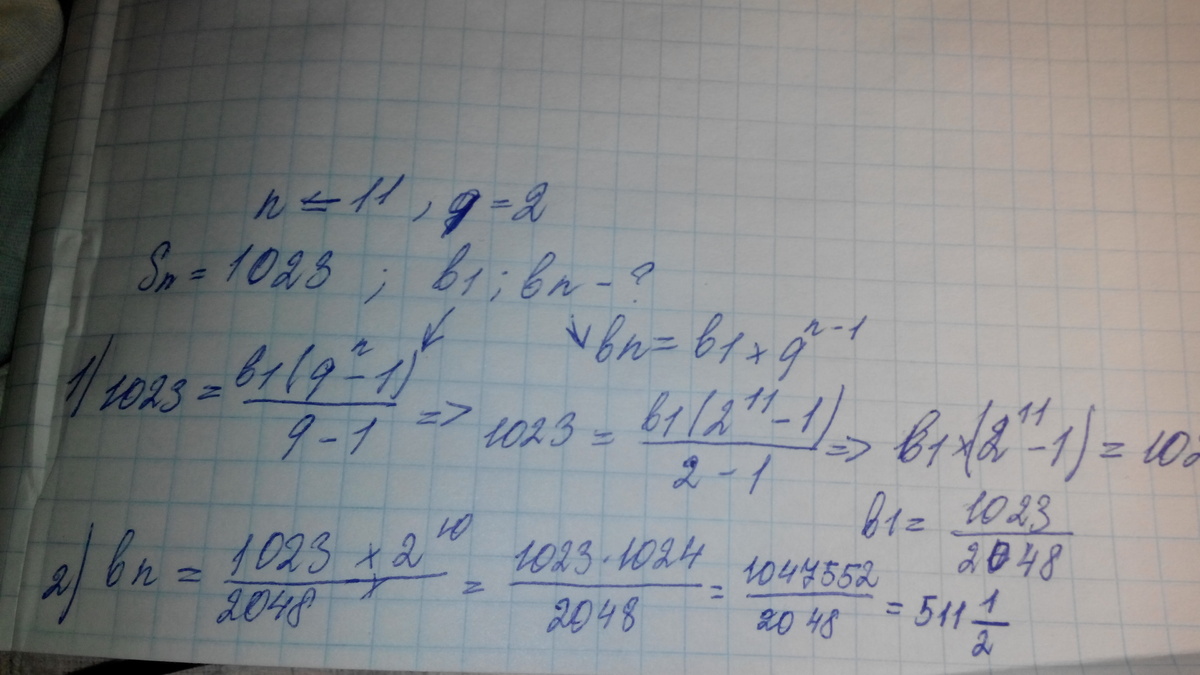 n = 11 , q = 2
Sn = 1023 ; в1 ; вn - ?
вn = в1 × q^(n-1)
1) 1023 = в1(q^n - 1) / (q - 1) => 1023 = в1(2^11 - 1) / (2 - 1) => в1 × (2^11 - 1) = 102
в1 = 1023 / 2048
2) вn = 1023 × 2^10 / 2048 = 1023 · 1024 / 2048 = 1047552 / 2048 = 511 1/2